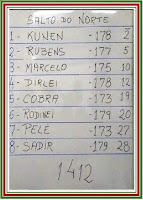 SALTO DO NORTE
1- KUNEN -178 2
2- RUBENS -177 5
3- MARCELO -175 10
4- DIRLEI -178 12
5- COBRA -173 19
6- RODINEI -179 20
7- PELÉ -173 27
8- SADIR -179 28
1412